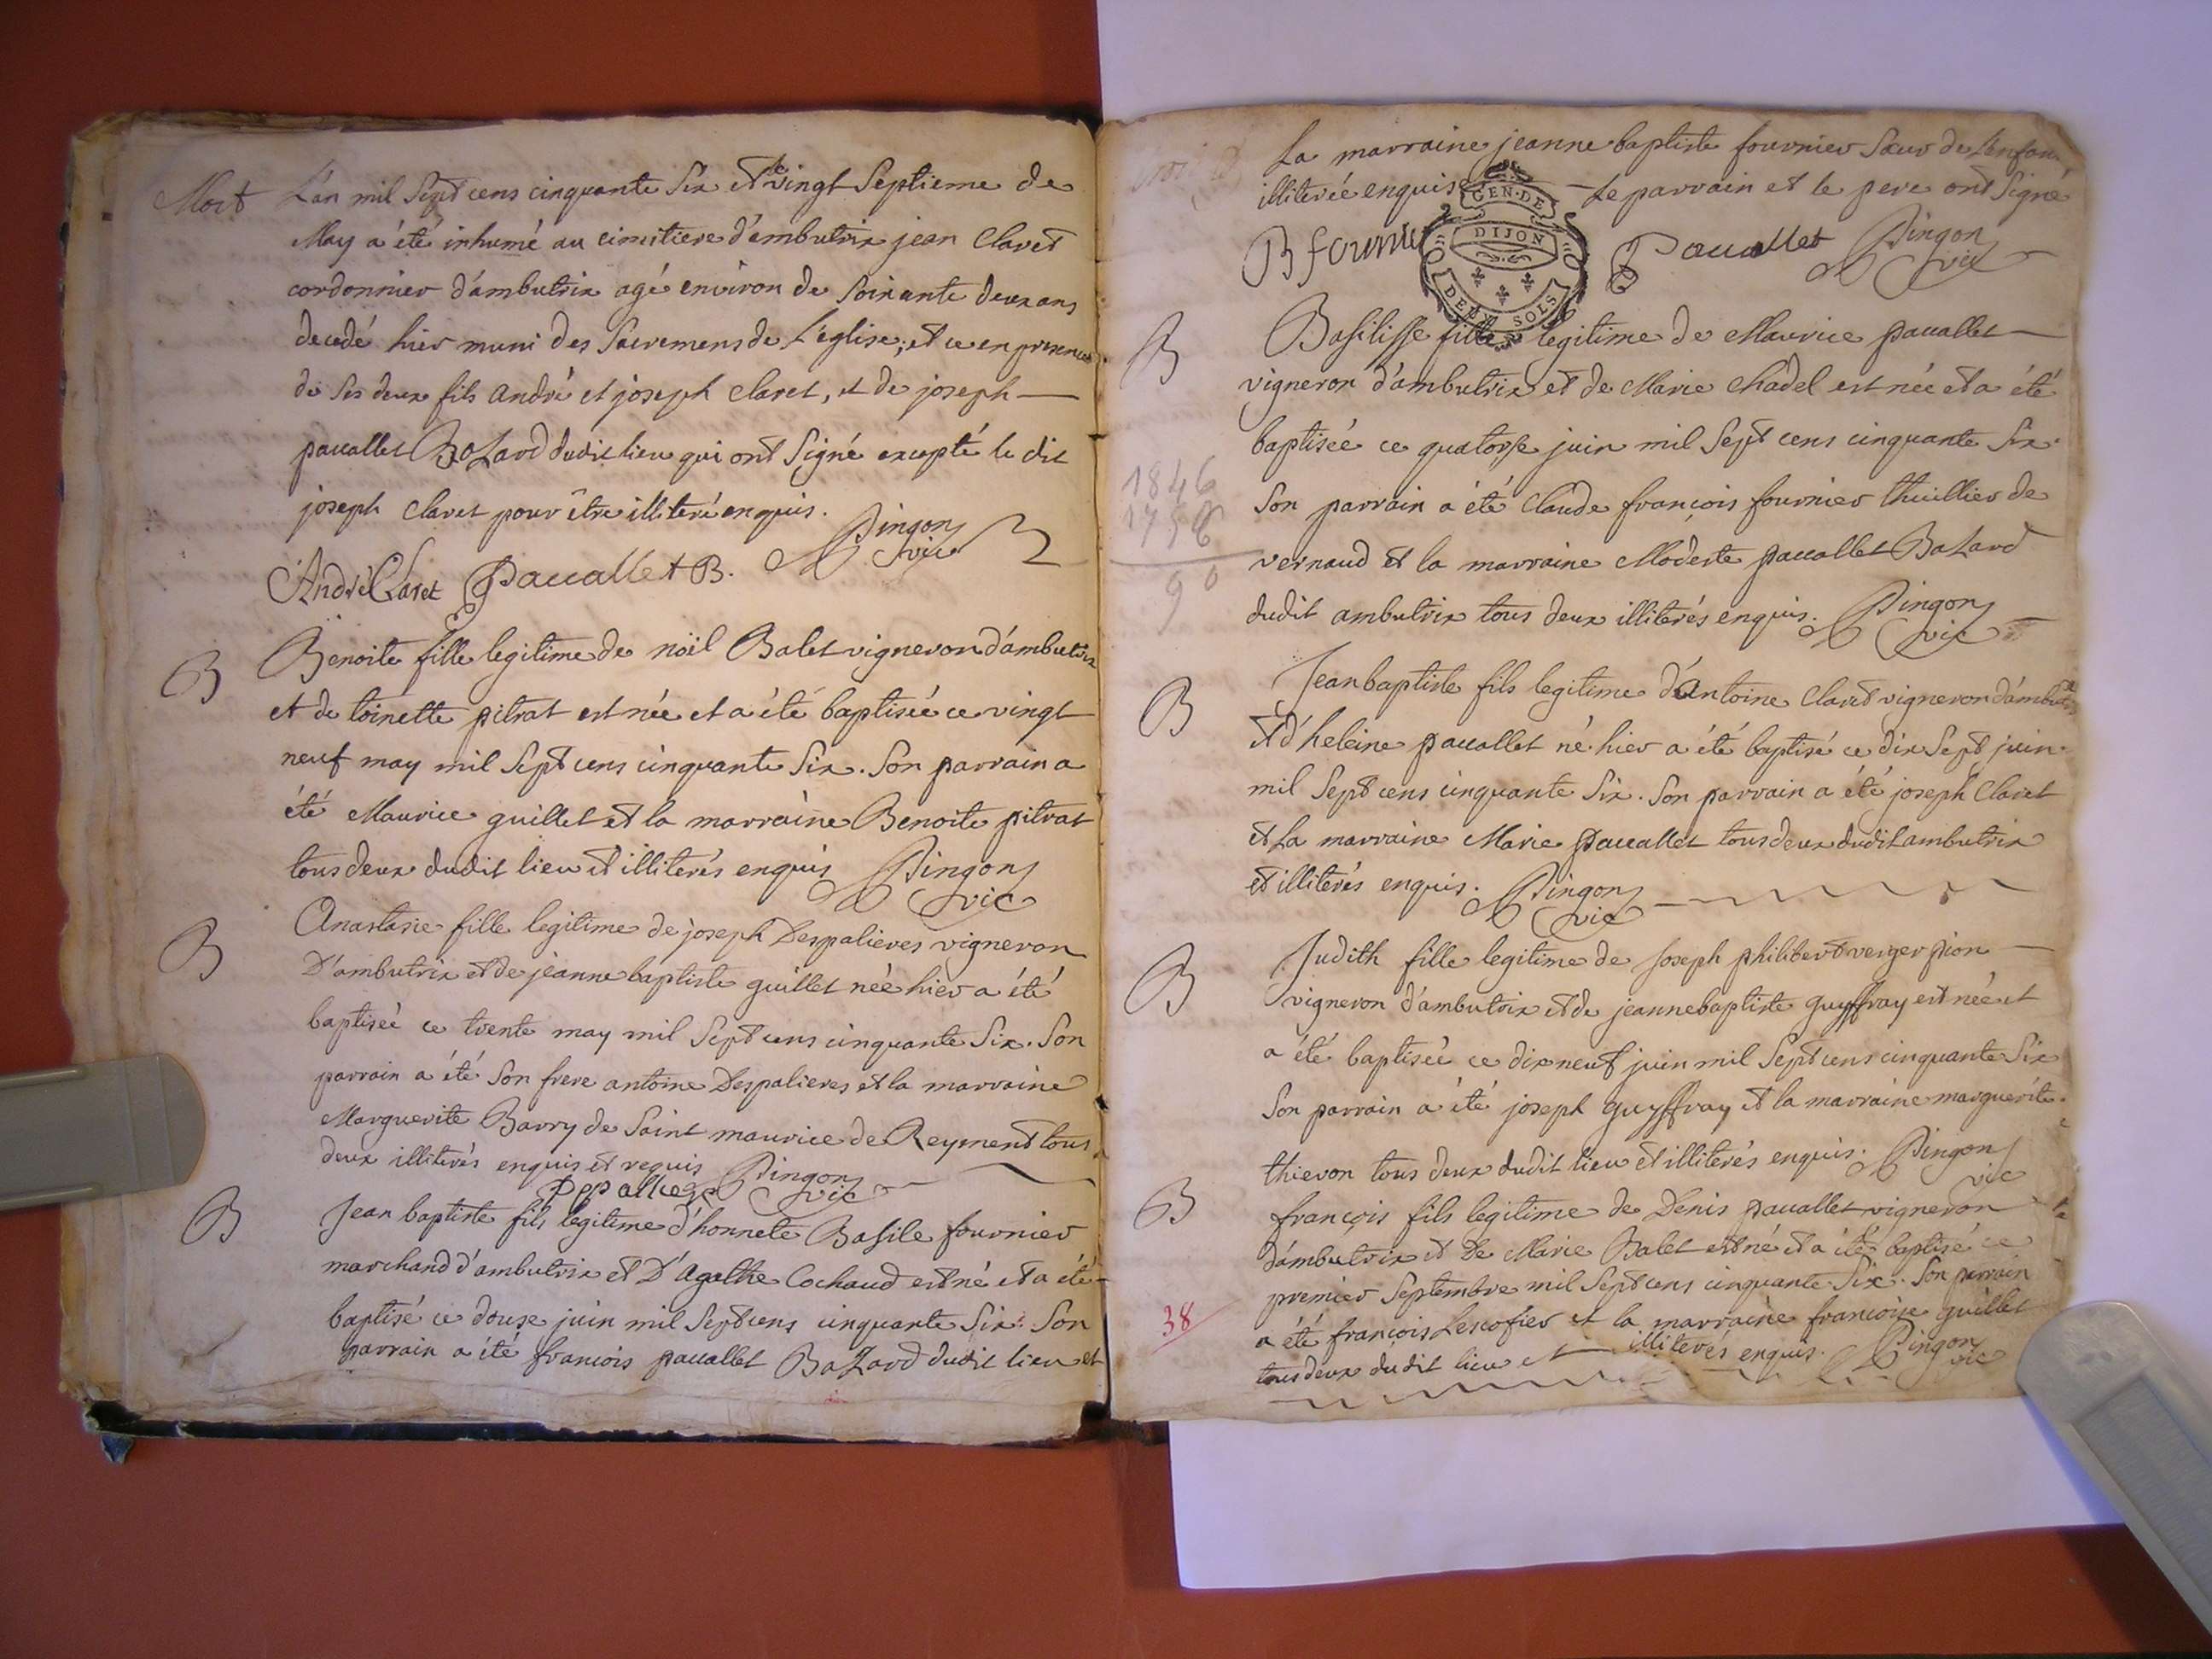 Mort
L'an mil Sept cens cinquante Six et le vingt Septieme de
May a été inhumé au cimitiere d'ambutrix jean Claret
cordonnier d'ambutrix agé environ de Soixante deux ans
decedé hier muni des Sacremens de L'église; et ce en presence
de Ses deux fils andré et joseph Claret, et de joseph
pauallet BaZard dudit lieu qui ont Signé excepté le dit
joseph Claret pour être illiteré enquis.
Pingon vic
André Claret Pauallet B.
B
Benoite fille legitime de noël Balet vigneron d'ambutrix
et de toinette pitrat est née et a été baptisée ce vingt
neuf may mil Sept cens cinquante Six. Son parrain a
été Maurice guillet et la marraine Benoite pitrat
tous deux dudit lieu et illiterés enquis Pingon vic
B
Anastasie fille legitime de joseph Despalieres vigneron
D'ambutrix et de jeanne baptiste guillet née hier a été
baptisée ce trente may mil Sept cens cinquante Six. Son
parrain a été Son frere antoine Despalieres et la marraine
Marguerite Barry de Saint maurice de Reyment tous
deux illiterés enquis et requis Pingon vic
B
Jean baptiste fils legitime d'honnete Basile fournier
marchand d'ambutrix et D'Agathe Cochaud est né et a été
baptisé ce douse juin mil Sept cens cinquante Six. Son
parrain a été francois pauallet BaZard dudit lieu et
La marraine jeanne baptiste fournier Sœur de L'enfan
illiterée enquis Le parrain et le pere ont Signé
B fournier Pauallet Pingon vic
GEN. DE
DIJON
DEUX SOLS
B
Basilisse fille legitime de Maurice pauallet
vigneron d'ambutrix et de Marie Chadel est née et a été
baptisée ce quatorse juin mil Sept cens cinquante Six.
Son parrain a été Claude françois fournier thuillier de
vernaud et la marraine Modeste pauallet BaZard
dudit ambutrix tous deux illiterés enquis. Pingon vic
1846
1756
90
B
Jean baptiste fils legitime d'Antoine Claret vigneron d'ambutrix
et d'heleine pauallet né hier a été baptisé ce dix Sept juin
mil Sept cens cinquante Six. Son parrain a été joseph Claret
et La marraine Marie pauallet tous deux dudit ambutrix
et illiterés enquis. Pingon vic
B
Judith fille legitime de Joseph philibert verger pion
vigneron d'ambutrix et de jeanne baptiste guyffray est née et
a été baptisée ce dix neuf juin mil Sept cens cinquante Six
Son parrain a été joseph guyffray et la marraine marguerite
thievon tous deux dudit lieu et illiterés enquis. Pingon vic
B
françois fils legitime de Denis pauallet vigneron
d'ambutrix et De Marie Balet est né et a été baptisé ce
premier Septembre mil Sept cens cinquante Six. Son parrain
a été françois Lescofier et la marraine francoise guillet
tous deux dudit lieu et illiterés enquis. Pingon vic
38